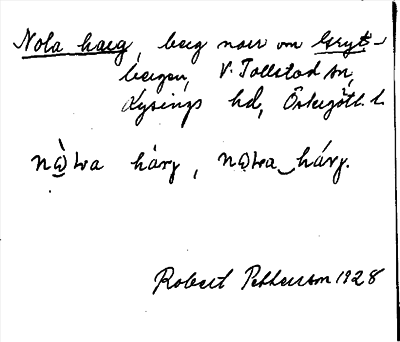 Nola harg, berg norr om Gryt-
bergen, V. Tollstad sn,
Lysings hd, Östergötl. l.
nὼlva hárg, nωlva‿hárg.
Robert Pettersson 1928